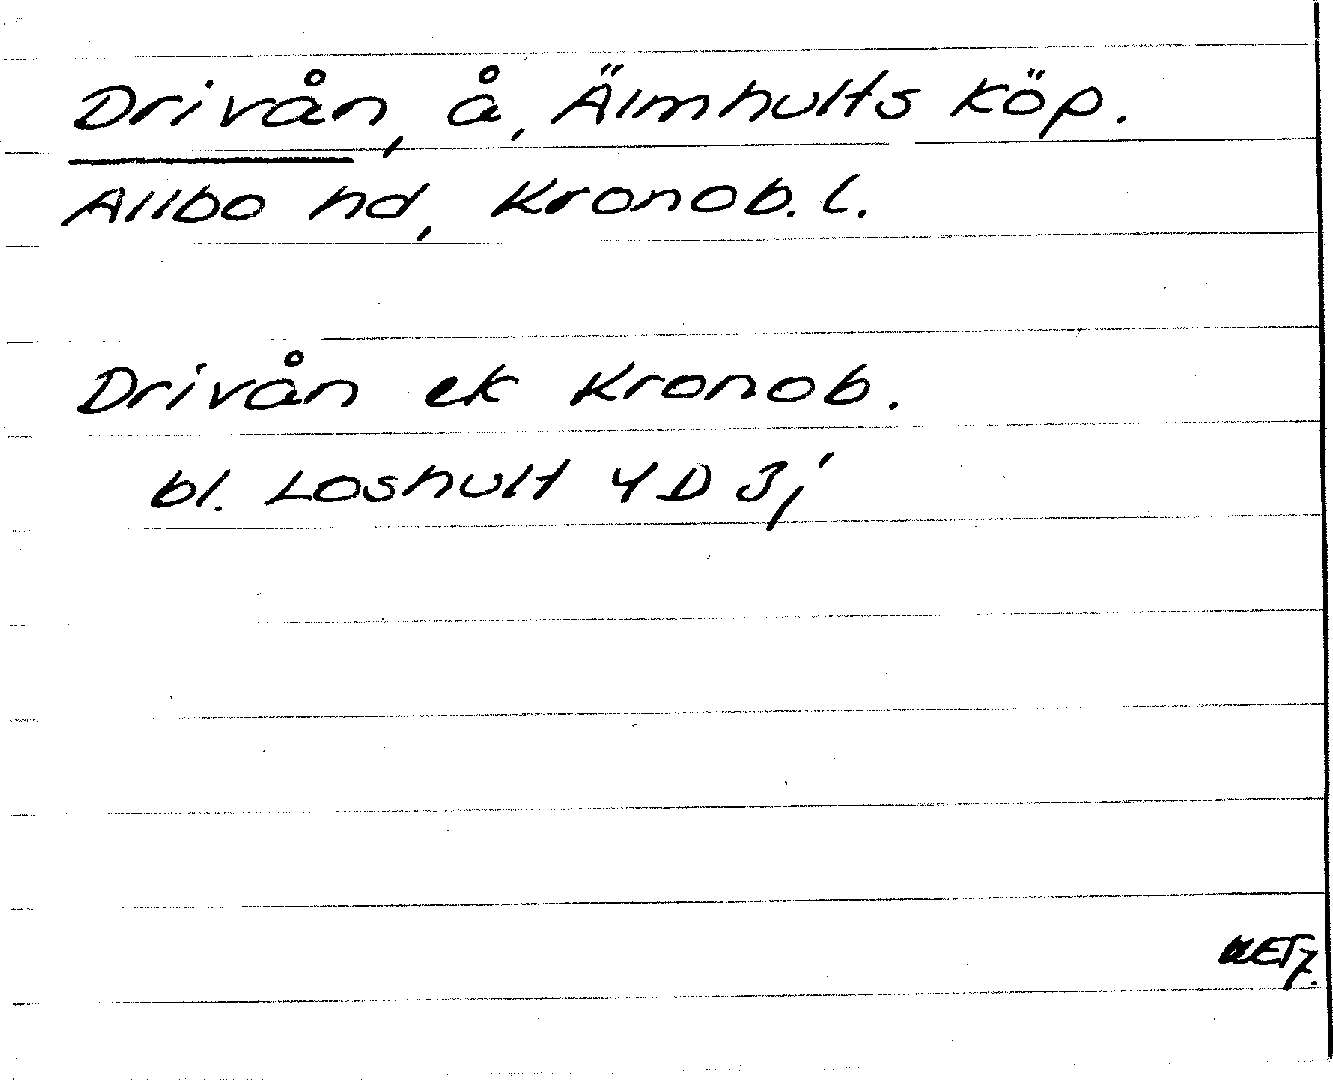 Drivån, å, Älmhults köp.
Allbo hd, Kronob. l.
Drivån ek Kronob.
bl. Loshult 4D 3j